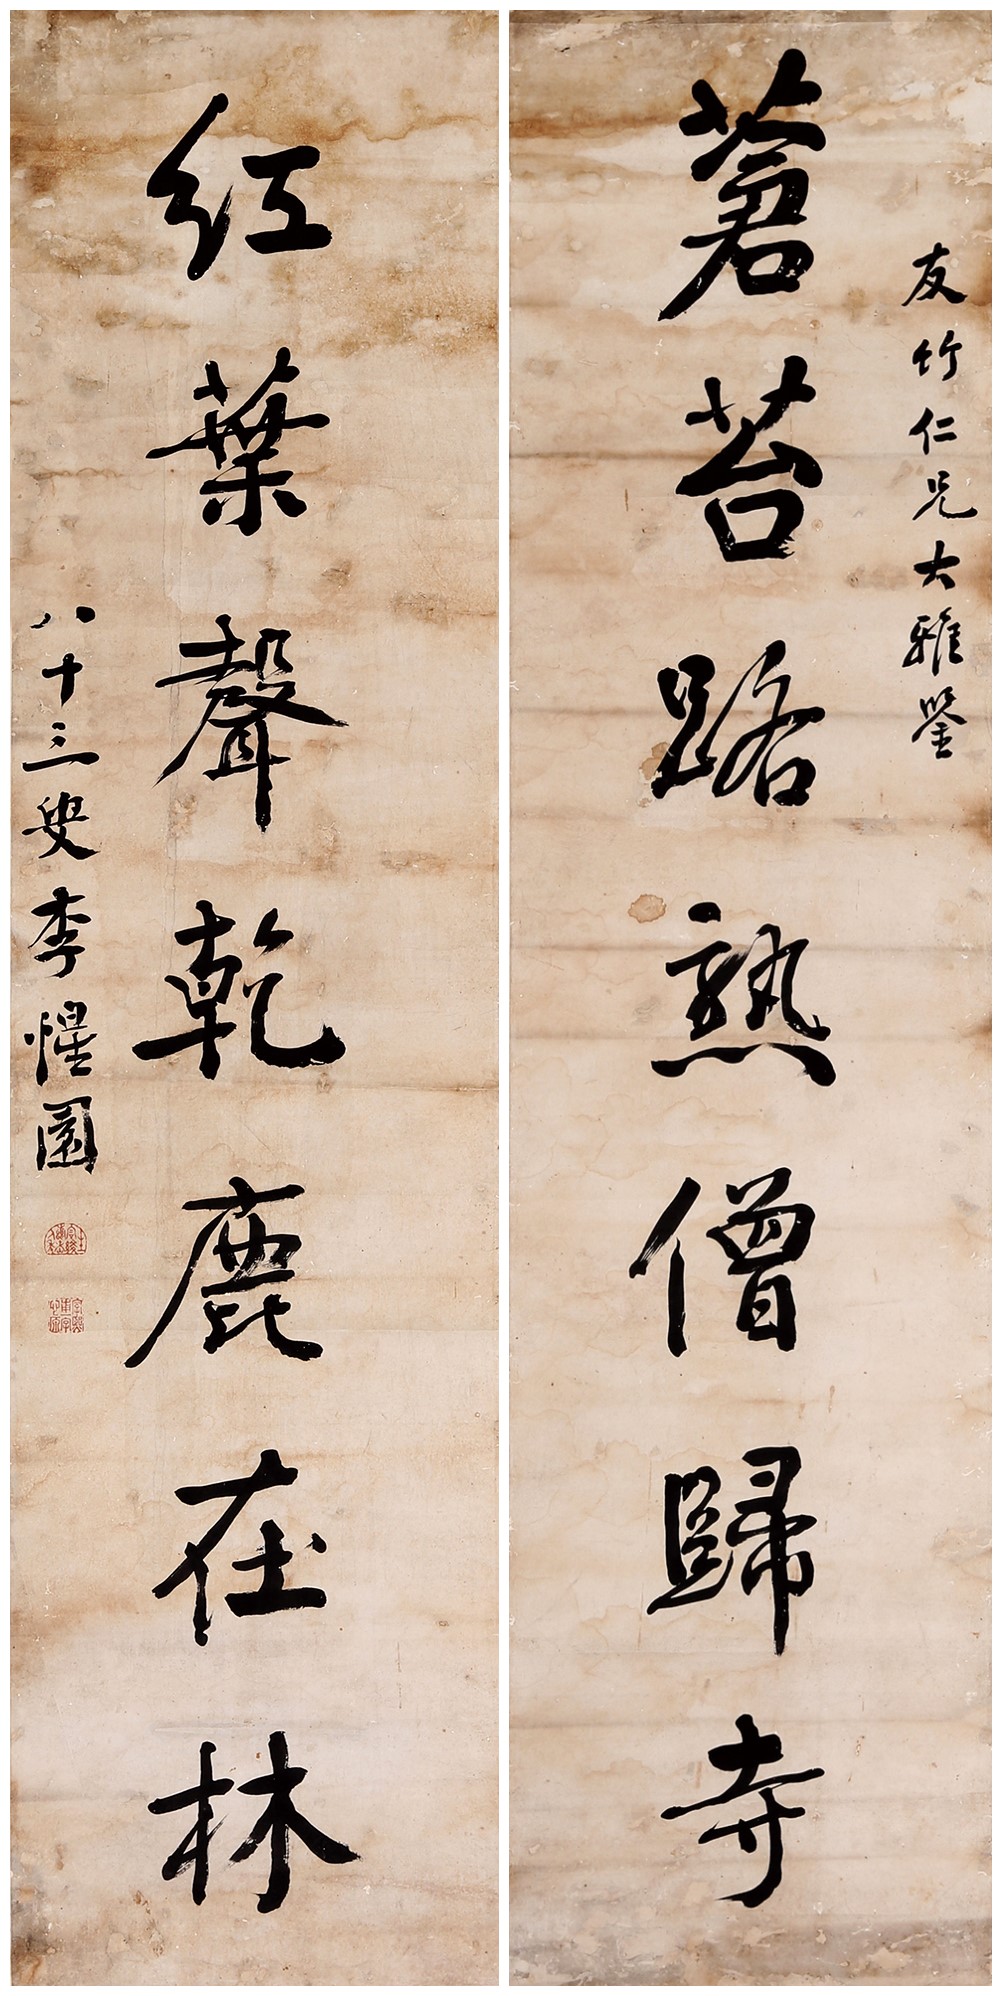 友竹仁兄大雅鑒
蒼苔路熟僧歸寺
紅葉聲乾鹿在林
八十三叟李惺園